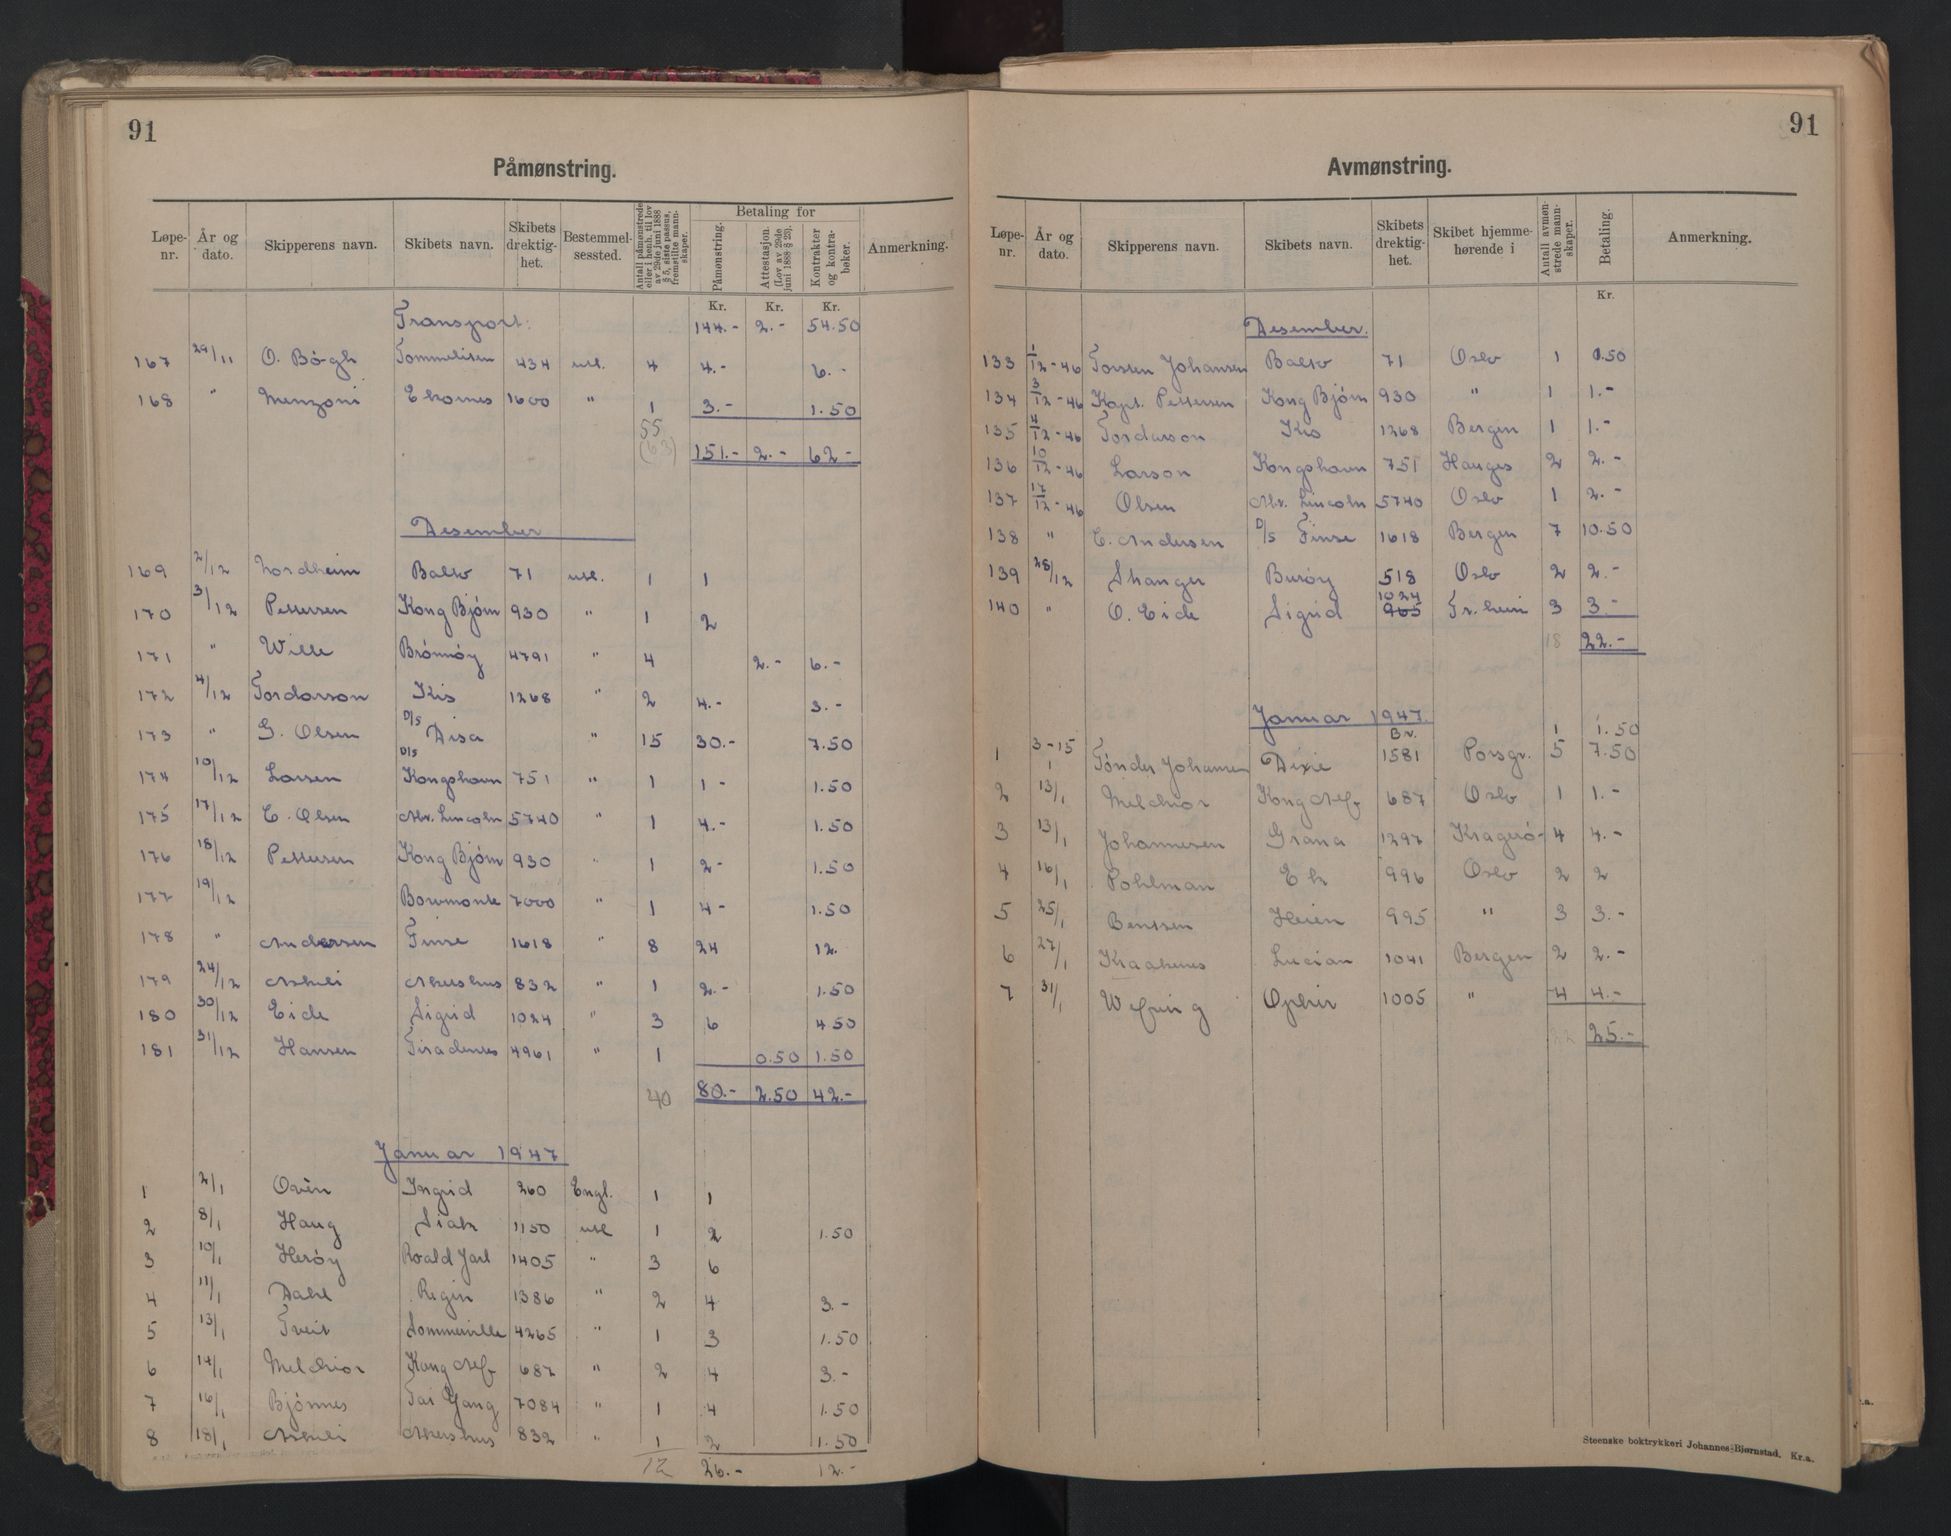 91
Påmønstring.
Løpe-nr. År og dato. Skipperens navn. Skibets navn. Skibets drektig-het. Bestemmel-sessted. Antall påmønstrede eller i henh. til lov av 29de juni 1888 § 5, siste passus, fremstilte mann-skaper. Betaling for Påmønstring. Attestasjon. (Lov av 29de juni 1888 § 23). Kontrakter og kontra-bøker. Anmerkning.
Kr. Kr. Kr.
Transport: 144.- 2.- 54.50
167 29/11 O. Bøgh Tommelisen 434 utl. 4 4.- 6.-
168 " Menzoni Ekornes 1600 " 1 3.- 1.50
55
(63) 151.- 2.- 62-
Desember
169 2/12 Nordheim Balto 71 utl. 1 1
170 3/12 Pettersen Kong Bjørn 930 " 1 2
171 " Wille Brönnöy 4791 " 4 2.- 6.-
172 4/12 Tordarson Kis 1268 " 2 4.- 3.-
173 " G. Olsen D/S Disa " 15 30.- 7.50
174 10/12 Larsen D/S Kongshavn 751 " 1 1- 1.50
175 17/12 E. Olsen Abr. Lincoln 5740 " 1 4.- 1.50
176 18/12 Pettersen Kong Bjørn 930 " 1 2- 1.50
177 19/12 Bowmonte 7000 " 1 4- 1.50
178 " Andersen Finse 1618 " 8 24 12.
179 24/12 Askeli Akershus 832 " 1 2.- 1.50
180 30/12 Eide Sigrid 1024 " 3 6 4.50
181 31/12 Hansen Tiradentes 4961 " 1 0.50 1.50
40 80.- 2.50 42.-
Januar 1947
1 2/1 Ovên Ingrid 260 Engl. 1 1
2 8/1 Haug Siak 1150 utl 1 2 1.50
3 10/1 Herøy Roald Jarl 1405 " 3 6
4 11/1 Dahl Regin 1386 " 2 4 3.-
5 13/1 Tveit Sommerville 4265 " 1 3 1.50
6 14/1 Melchior Kong Alf 687 " 2 4 3.-
7 16/1 Bjönnes Tai Yang 7084 " 1 4 1.50
8 18/1 Askeli Akershus 832 " 1 2 1.50
12 26.- 12.-
91
Avmønstring.
Løpe-nr. År og dato. Skipperens navn. Skibets navn. Skibets drektig-het. Skibet hjemme-hørende i Antall avmøn-strede mann-skaper. Betaling. Anmerkning.
Kr.
Desember.
133 1/12-46 Torsten Johansen Balto 71 Oslo 1 0.50
134 3/12-46 Kapt. Pettersen Kong Bjørn 930 " 1 1.-
135 4/12-46 Tordarson Kis 1268 Bergen 1 1.-
136 10/12-46 Larson Kongshavn 751 Hauges 2 2.-
137 17/12-46 Olsen Abr. Lincoln 5740 Oslo 1 2.-
138 " E. Andersen D/S Finse 1618 Bergen 7 10.50
139 28/12 Stranger Buröy 518 Oslo 2 2.-
140 " O. Eide Sigrid 1024 965 Tr.heim 3 3.-
18 22.-
Januar 1947.
1 1.50
1 3-15/1 Tønder Johansen Dixie Br. 1581 Porsgr. 5 7.50
2 13/1 Melchior Kong Alf 687 Oslo 1 1.-
3 13/1 Johannesen Grana 1297 Kragerö 4 4.-
4 16/1 Pohlman Ek 996 Oslo 2 2
5 25/1 Bentsen Heien 995 " 3 3.-
6 27/1 Kraakenes Lucian 1041 Bergen 2 2.-
7 31/1 Ophir 1005 " 4 4.-
22 25.-
Steenske boktrykkeri Johannes Bjørnstad. Kr.a.